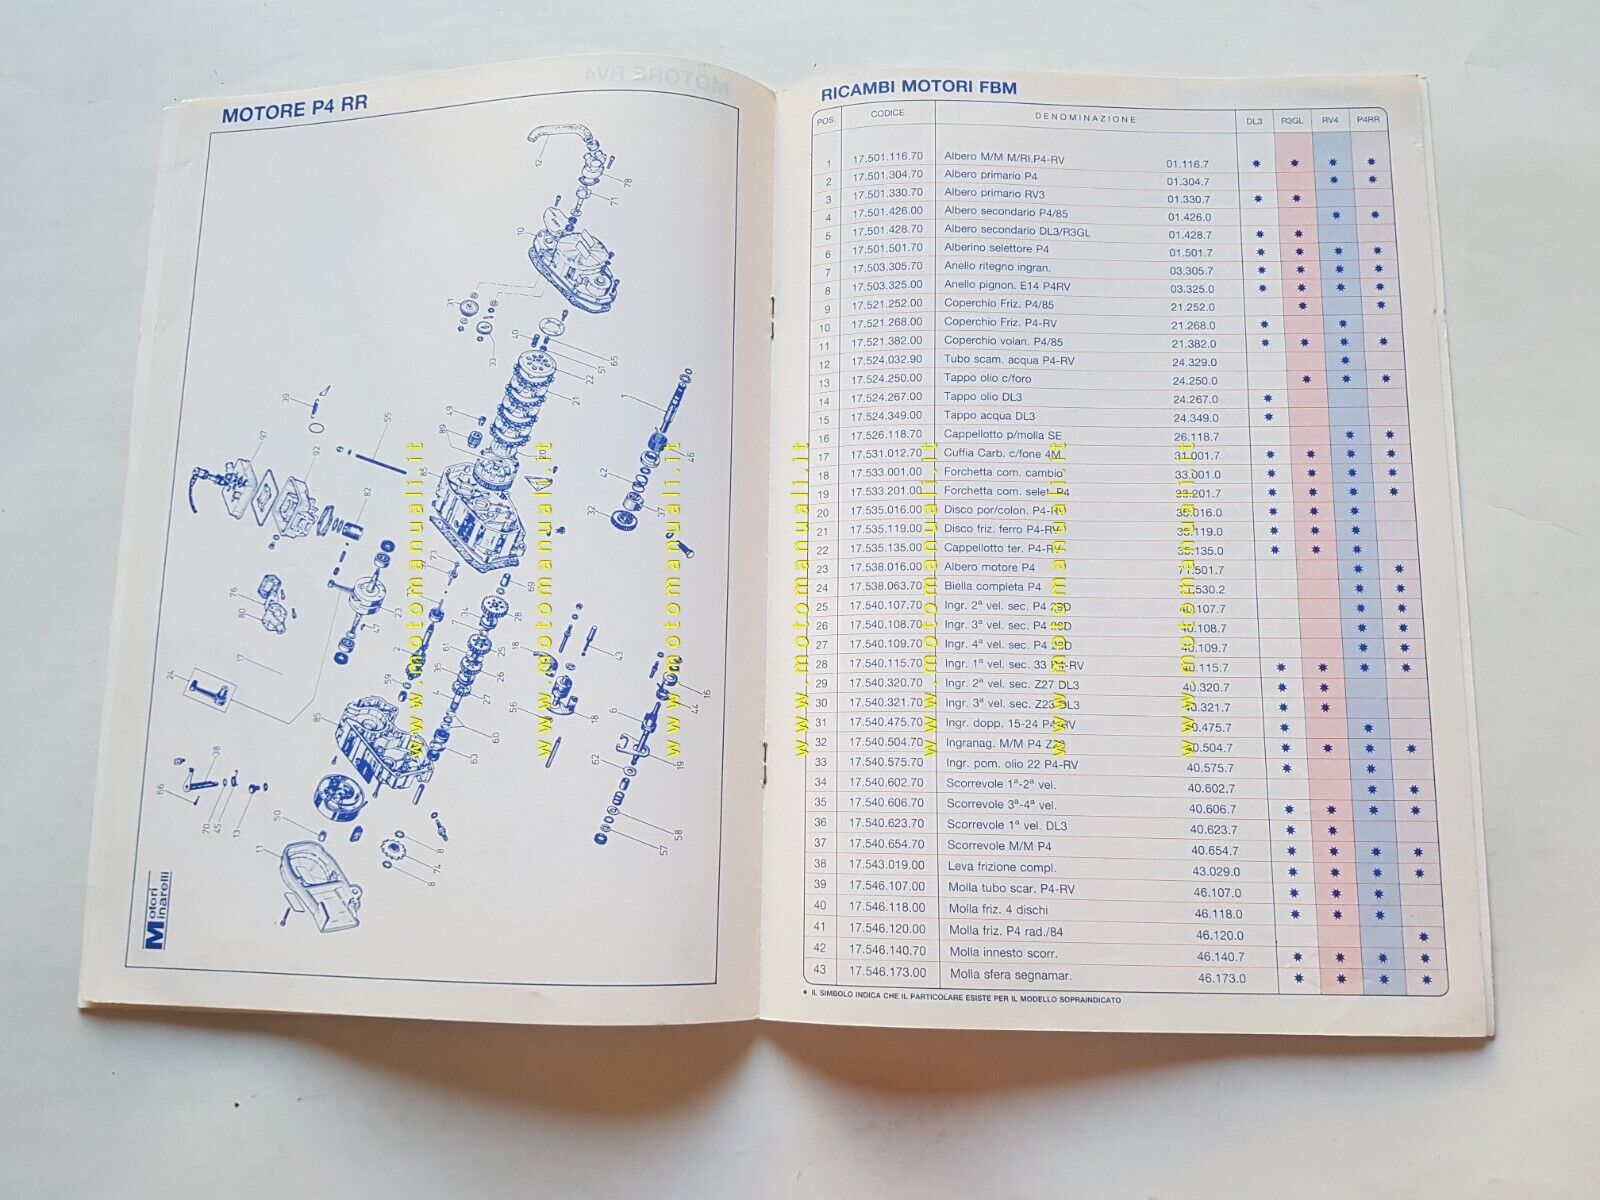 MOTORE P4 RR
Motori
Minarelli
RICAMBI MOTORI FBM
POS. CODICE DENOMINAZIONE DL3 R3GL RV4 P4RR
1 17.501.116.70 Albero M/M M/RI.P4-RV 01.116.7 * * * *
2 17.501.304.70 Albero primario P4 01.304.7 * *
3 17.501.330.70 Albero primario RV3 01.330.7 * *
4 17.501.426.00 Albero secondario P4/85 01.426.0 * *
5 17.501.428.70 Albero secondario DL3/R3GL 01.428.7 * *
6 17.501.501.70 Alberino selettore P4 01.501.7 * * * *
7 17.503.305.70 Anello ritegno ingran. 03.305.7 * * * *
8 17.503.325.00 Anello pignon. E14 P4RV 03.325.0 * * * *
9 17.521.252.00 Coperchio Friz. P4/85 21.252.0 * *
10 17.521.268.00 Coperchio Friz. P4-RV 21.268.0 * *
11 17.521.382.00 Coperchio volan. P4/85 21.382.0 * * * *
12 17.524.032.90 Tubo scam. acqua P4-RV 24.329.0 *
13 17.524.250.00 Tappo olio c/foro 24.250.0 * * *
14 17.524.267.00 Tappo olio DL3 24.267.0 *
15 17.524.349.00 Tappo acqua DL3 24.349.0 *
16 17.526.118.70 Cappellotto p/molla SE 26.118.7 * *
17 17.531.012.70 Cuffia Carb. c/fone 4M 31.001.7 * * * *
18 17.533.001.00 Forchetta com. cambio 33.001.0 * * * *
19 17.533.201.00 Forchetta com. selet. P4 33.201.7 * * * *
20 17.535.016.00 Disco por/colon. P4-RV 35.016.0 * * *
21 17.535.119.00 Disco friz. ferro P4-RV 35.119.0 * * *
22 17.535.135.00 Cappellotto ter. P4-RV 35.135.0 * * *
23 17.538.016.00 Albero motore P4 71.501.7 * *
24 17.538.063.70 Biella completa P4 .530.2 * *
25 17.540.107.70 Ingr. 2ª vel. sec. P4 D 40.107.7 * *
26 17.540.108.70 Ingr. 3ª vel. sec. P4 D 40.108.7 * *
27 17.540.109.70 Ingr. 4ª vel. sec. P4 D 40.109.7 * *
28 17.540.115.70 Ingr. 1ª vel. sec. 33 P4-RV 40.115.7 * * * *
29 17.540.320.70 Ingr. 2ª vel. sec. Z27 DL3 40.320.7 * *
30 17.540.321.70 Ingr. 3ª vel. sec. Z23 DL3 40.321.7 * *
31 17.540.475.70 Ingr. dopp. 15-24 P4-RV 40.475.7 * *
32 17.540.504.70 Ingranag. M/M P4 40.504.7 * * * *
33 17.540.575.70 Ingr. pom. olio 22 P4-RV 40.575.7 * *
34 17.540.602.70 Scorrevole 1ª-2ª vel. 40.602.7 * *
35 17.540.606.70 Scorrevole 3ª-4ª vel. 40.606.7 * * * *
36 17.540.623.70 Scorrevole 1ª vel. DL3 40.623.7 * *
37 17.540.654.70 Scorrevole M/M P4 40.654.7 * * * *
38 17.543.019.00 Leva frizione compl. 43.029.0 * * * *
39 17.546.107.00 Molla tubo scar. P4-RV 46.107.0 * * *
40 17.546.118.00 Molla friz. 4 dischi 46.118.0 * * *
41 17.546.120.00 Molla friz. P4 rad./84 46.120.0 *
42 17.546.140.70 Molla innesto scorr. 46.140.7 * * * *
43 17.546.173.00 Molla sfera segnamar. 46.173.0 * * * *
* IL SIMBOLO INDICA CHE IL PARTICOLARE ESISTE PER IL MODELLO SOPRAINDICATO
www.motomanuali.it
www.motomanuali.it
www.motomanuali.it
www.motomanuali.it
www.motomanuali.it
www.motomanuali.it
www.motomanuali.it